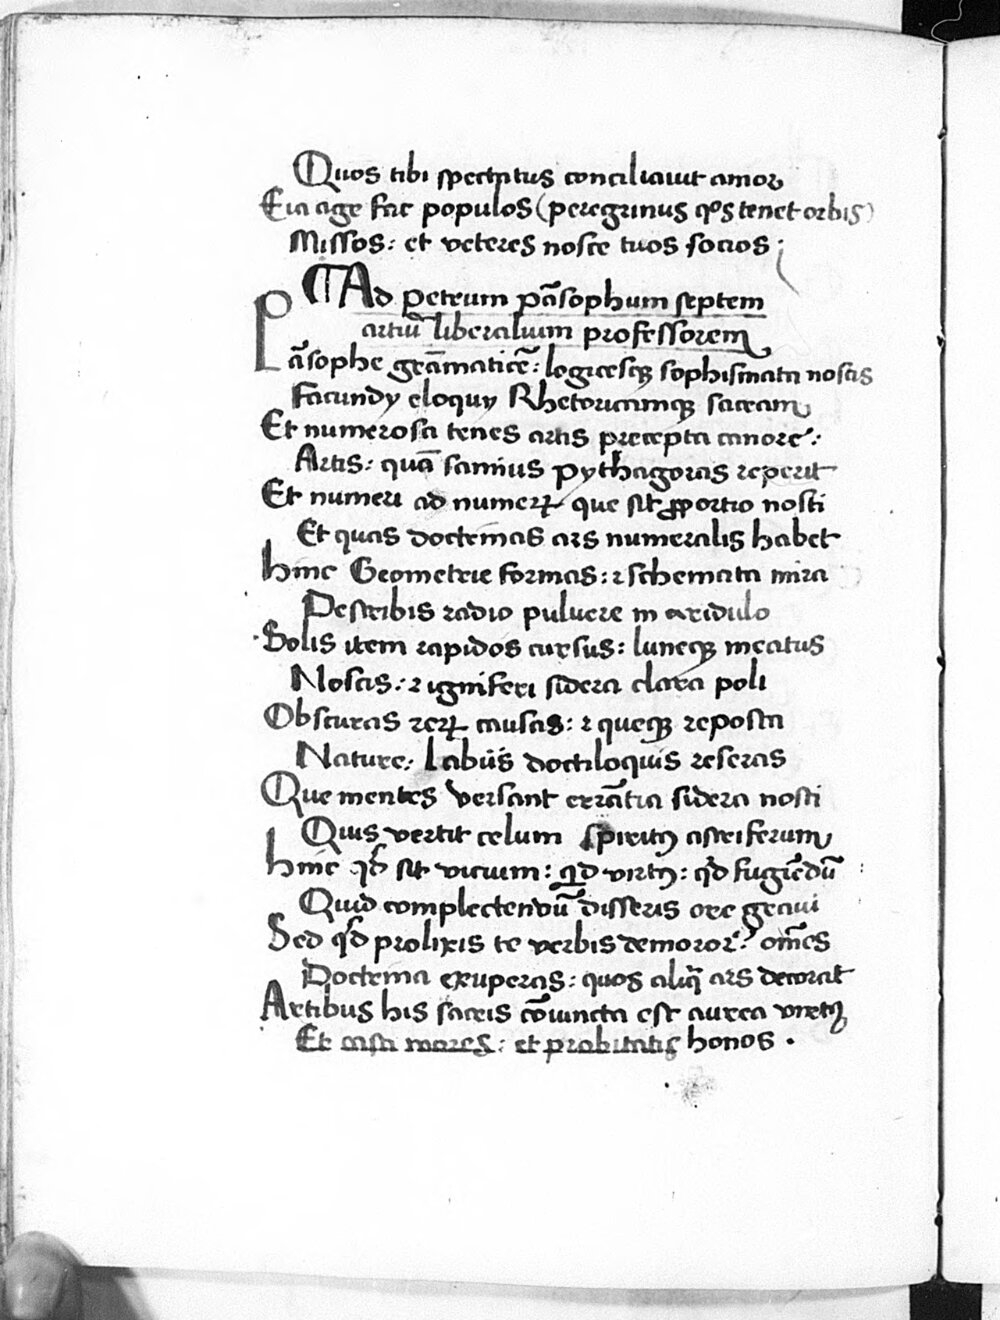 Quos tibi spectatus conciliauit amor
Eia age fac populos (peregrinus qͦs tenet orbis)
Missos: et veteres nosce tuos socios:
¶Ad petrum pãsophum septem
artiũ liberalium professorem
Pãsophe grãmaticẽ: logicesqꝫ sophismata noscis
Facundy eloquy Rhetoricamqꝫ sacram
Et numerosa tenes artis precepta canore:
Artis: quã samius pythagoras reperit
Et numeri ad numeꝝ que sit ꝓportio nosti
Et quas doctrinas ars numeralis habet
hinc Geometrie formas: ⁊ schemata mira
Describis radio puluere in aridulo
Solis item rapidos cursus: luneqꝫ meatus
Noscis: ⁊ igniferi sidera clara poli
Obscuras reꝝ causas: ⁊ queqꝫ reposta
Nature: labiis doctiloquis reseras
Que mentes versant errãtia sidera nosti
Quis vertit celum spiritꝰ astriferum
hinc qd̕ sit vicium: qd virtꝰ: qd̕ fugiẽdũ:
Quid complectendũ disseris ore graui
Sed qd̕ prolixis te verbis demoror? om̃es
Doctrina exuperas: quos aliq̃ ars decorat
Artibus his sacris cõiuncta est aurea virtꝰ
Et casti mores: et probitatis honos.